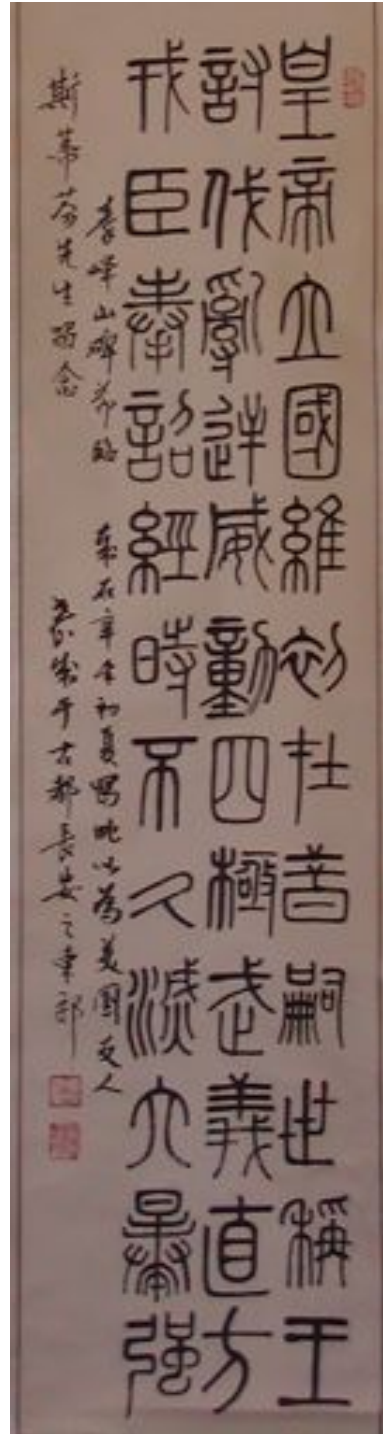 皇帝立國維初在昔嗣世稱王
討伐亂逆威動四極武義直方
戎臣奉詔經時不久滅六暴強
李峰山碑節臨 歲在辛 初夏 此以為美國友人
斯蒂芬先生留念 于古都長安之東郊